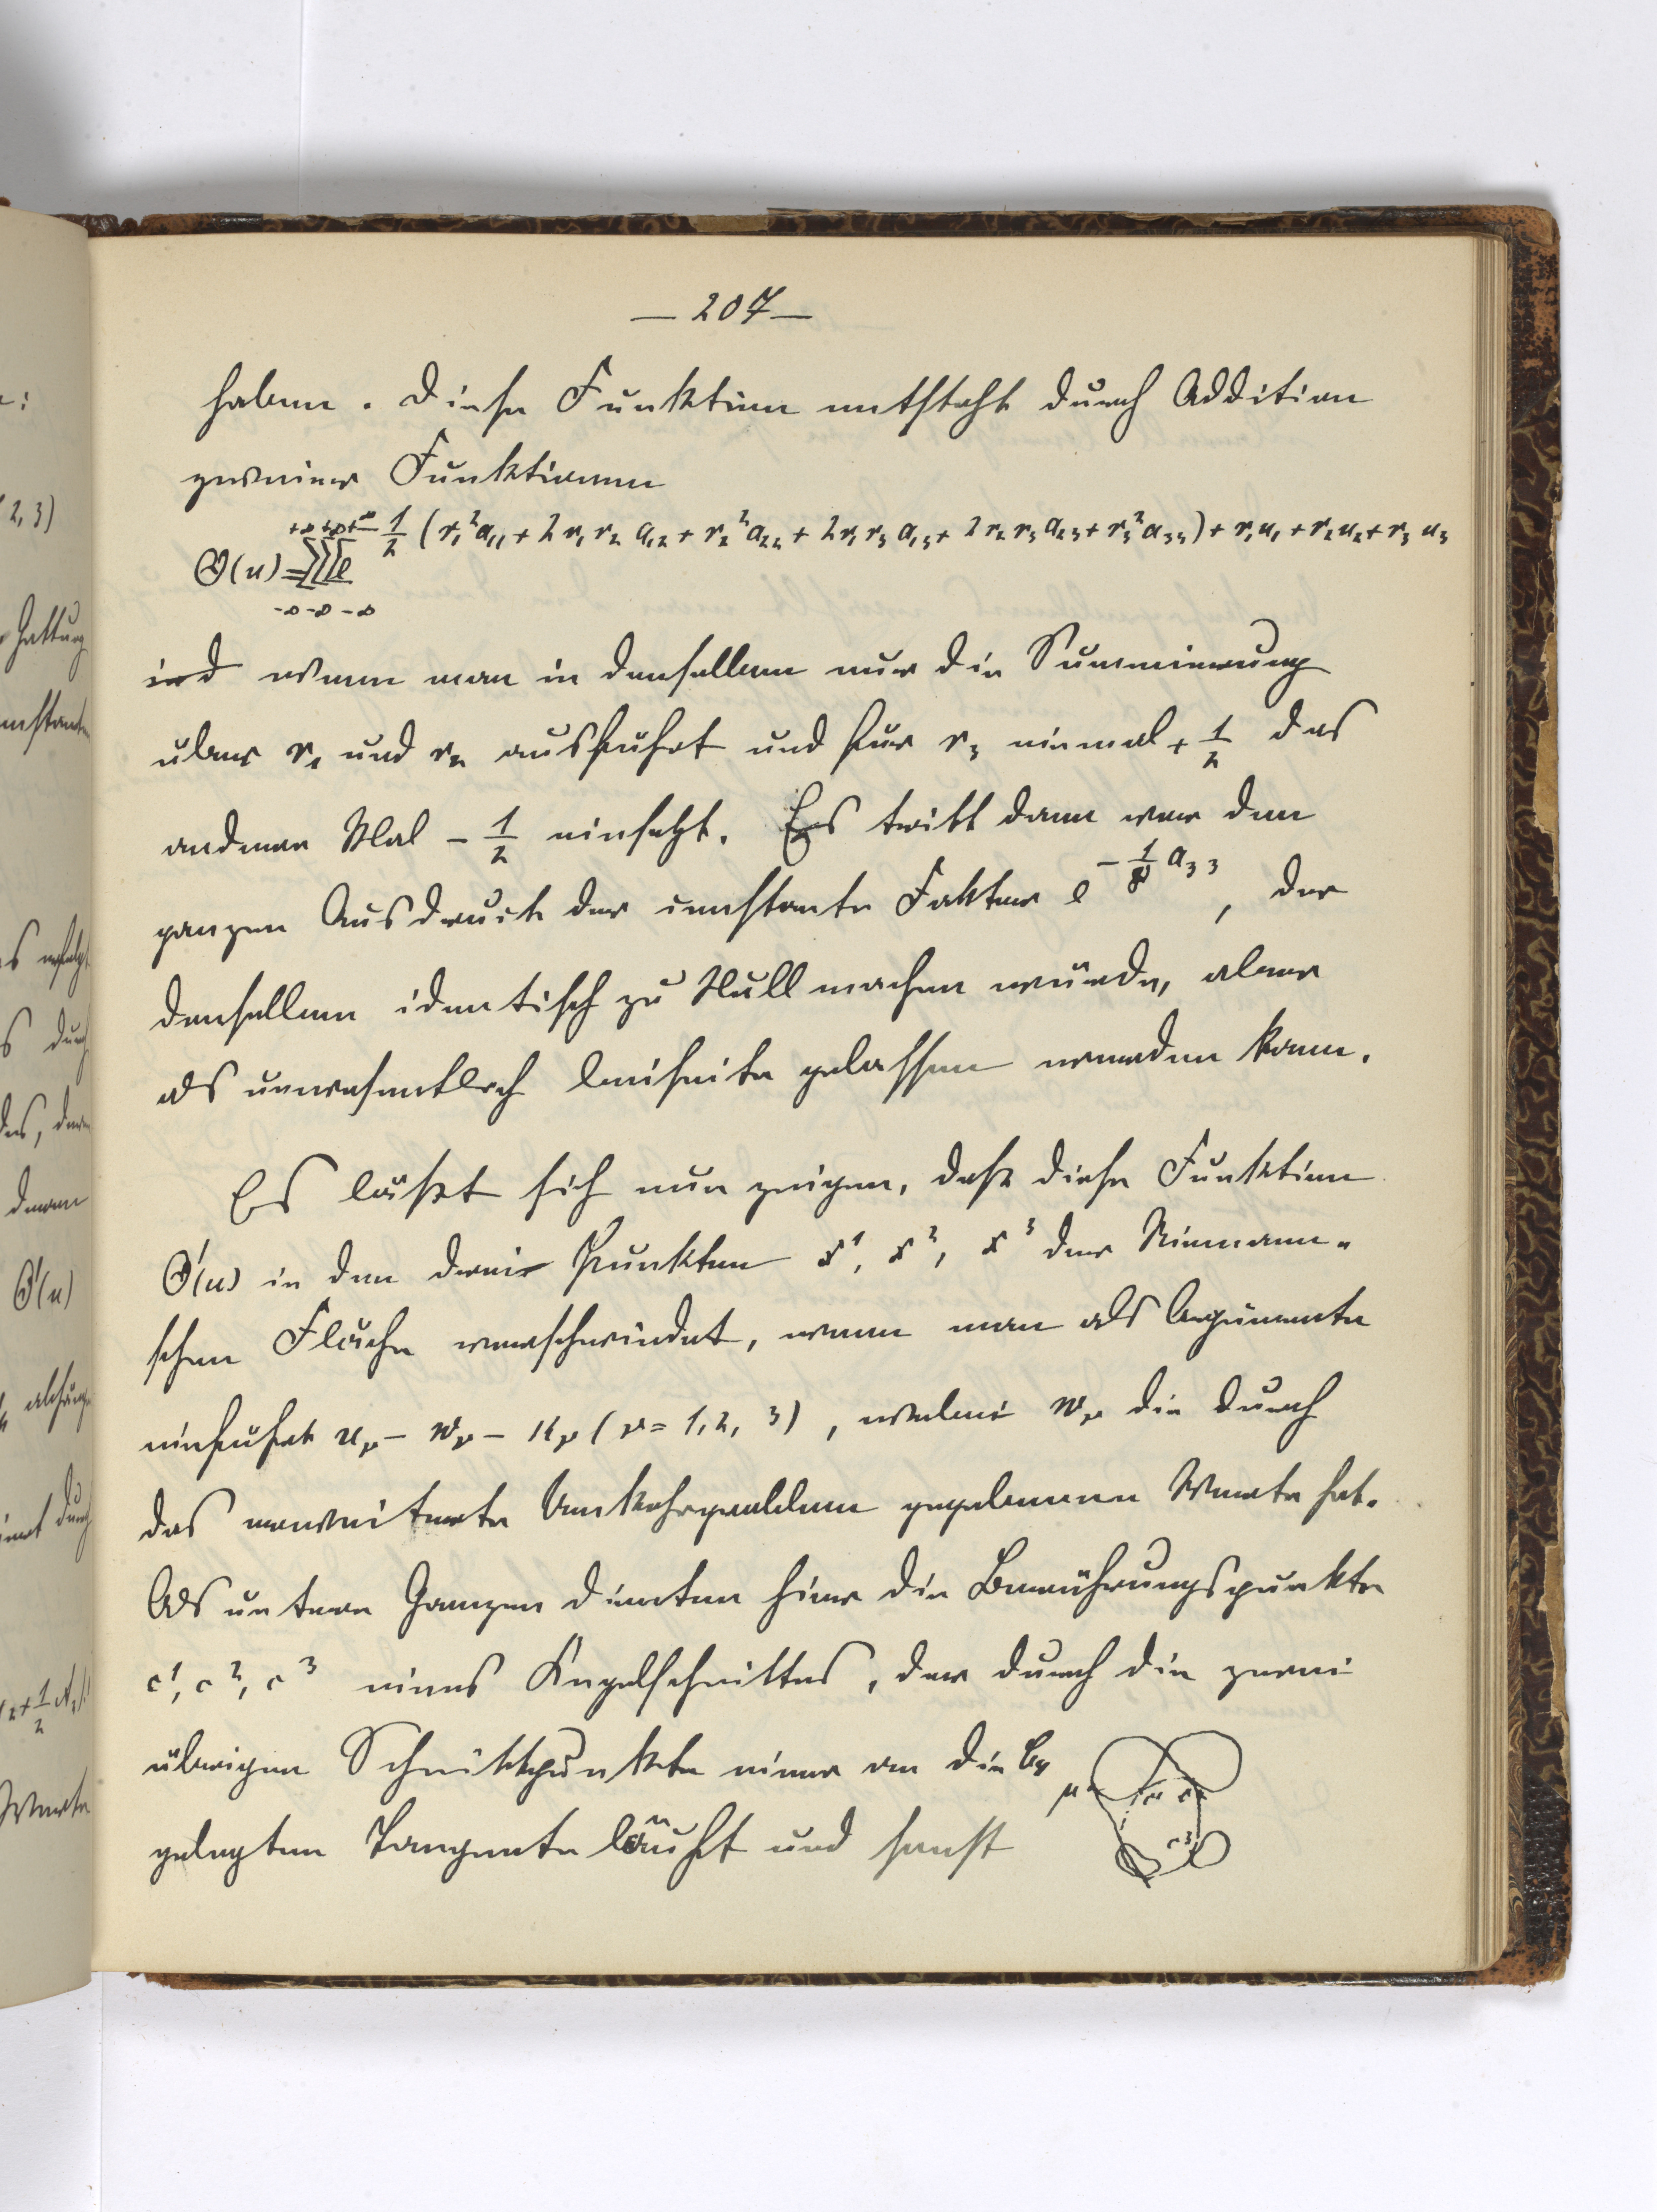 — 207 —
haben. Diese Funktion entsteht durch Addition
zweier Funktionen
Θ(u) = ∑∑∑ e^{-1/2 (r₁²a₁₁ + 2r₁r₂ a₁₂ + r₂²a₂₂ + 2r₁r₃ a₁₃ + 2r₂r₃a₂₃ + r₃²a₃₃) + r₁u₁ + r₂u₂ + r₃u₃}
+∞ +∞ +∞
-∞ -∞ -∞
ind wenn man in denselben nur die Summierung
über r₁ und r₂ ausführt und für r₃ einmal + 1/2 das
andere Mal - 1/2 einsetzt. Es tritt dann vor den
ganzen Ausdruck der constante Faktor e^{-1/8 a₃₃}, der
denselben identisch zu Null machen würde, aber
als unwesentlich beiseite gelassen werden kann.
Es läßt sich nun zeigen, daß diese Funktion
Θ'(u) in den drei Punkten x¹, x², x³ der Riemann-
schen Fläche verschwindet, wenn man als Argumente
einführt u_ν - w_ν - K_ν (ν = 1, 2, 3), wobei w_ν die durch
das erweiterte Umkehrproblem gegebenen Werte hat.
Als untere Grenzen dienten hier die Berührungspunkte
c¹, c², c³ eines Kegelschnittes, der durch die zwei
übrigen Schnittpunkte einer an die C₄
gelegten Tangente läuft und sonst
μ
c³